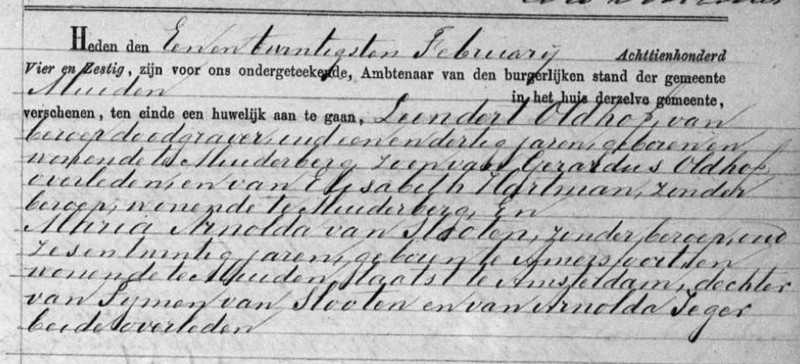 Heden den Eenentwintigsten Februarij Achttienhonderd
Vier en Zestig, zijn voor ons ondergeteekende, Ambtenaar van den burgerlijken stand der gemeente
Muiden in het huis derzelve gemeente,
verschenen, ten einde een huwelijk aan te gaan, Lendert Oldhof, van
beroep doodgraver, oud een en dertig jaren, geboren en
wonende te Muiderberg, zoon van Gerardus Oldhof,
overleden, en van Elisabeth Hartman, zonder
beroep, wonende te Muiderberg, En
Maria Arnolda van Slooten, zonder beroep, oud
zes en twintig jaren, geboren te Amersfoort en
wonende te Muiden, laatst te Amsterdam, dochter
van Symen van Slooten en van Arnolda Jeger
beide overleden